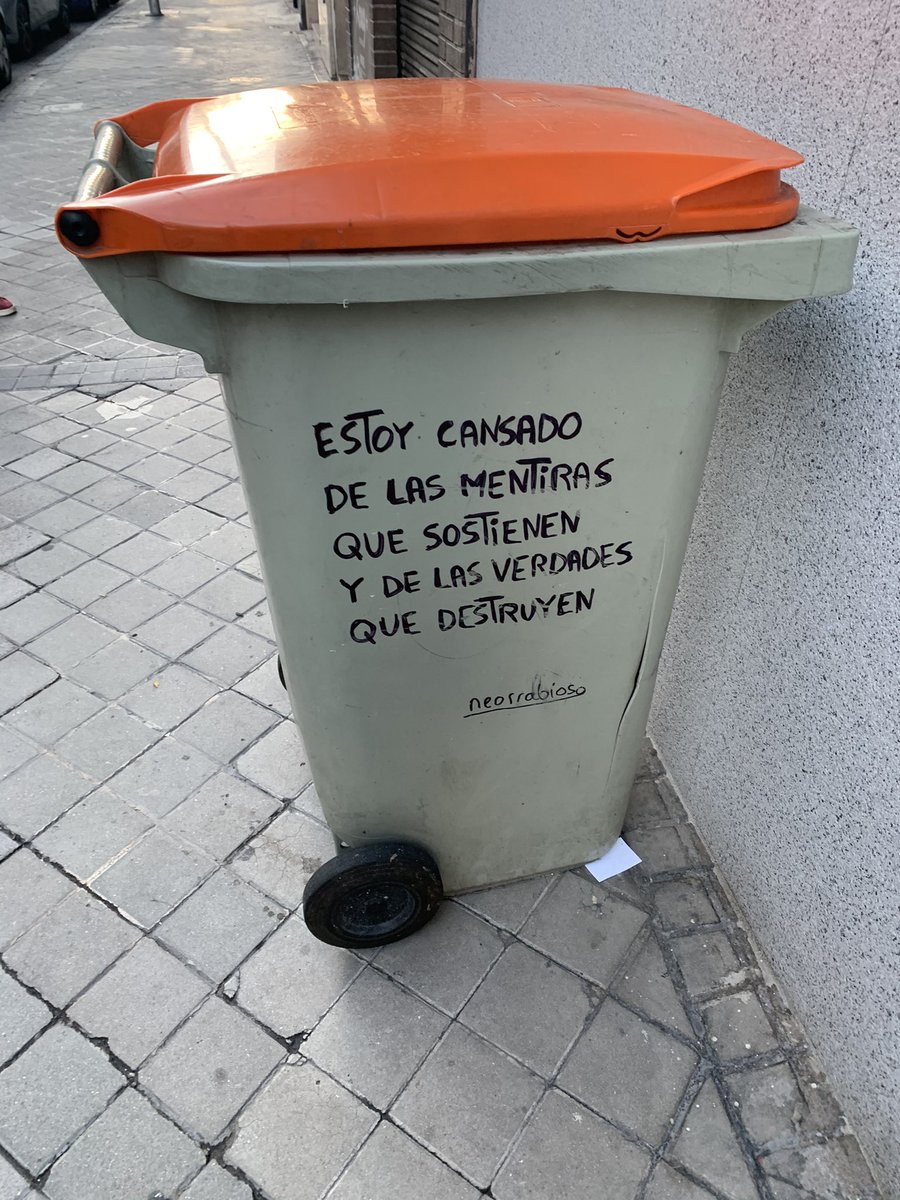 ESTOY CANSADO
DE LAS MENTIRAS
QUE SOSTIENEN
Y DE LAS VERDADES
QUE DESTRUYEN
neorrabioso